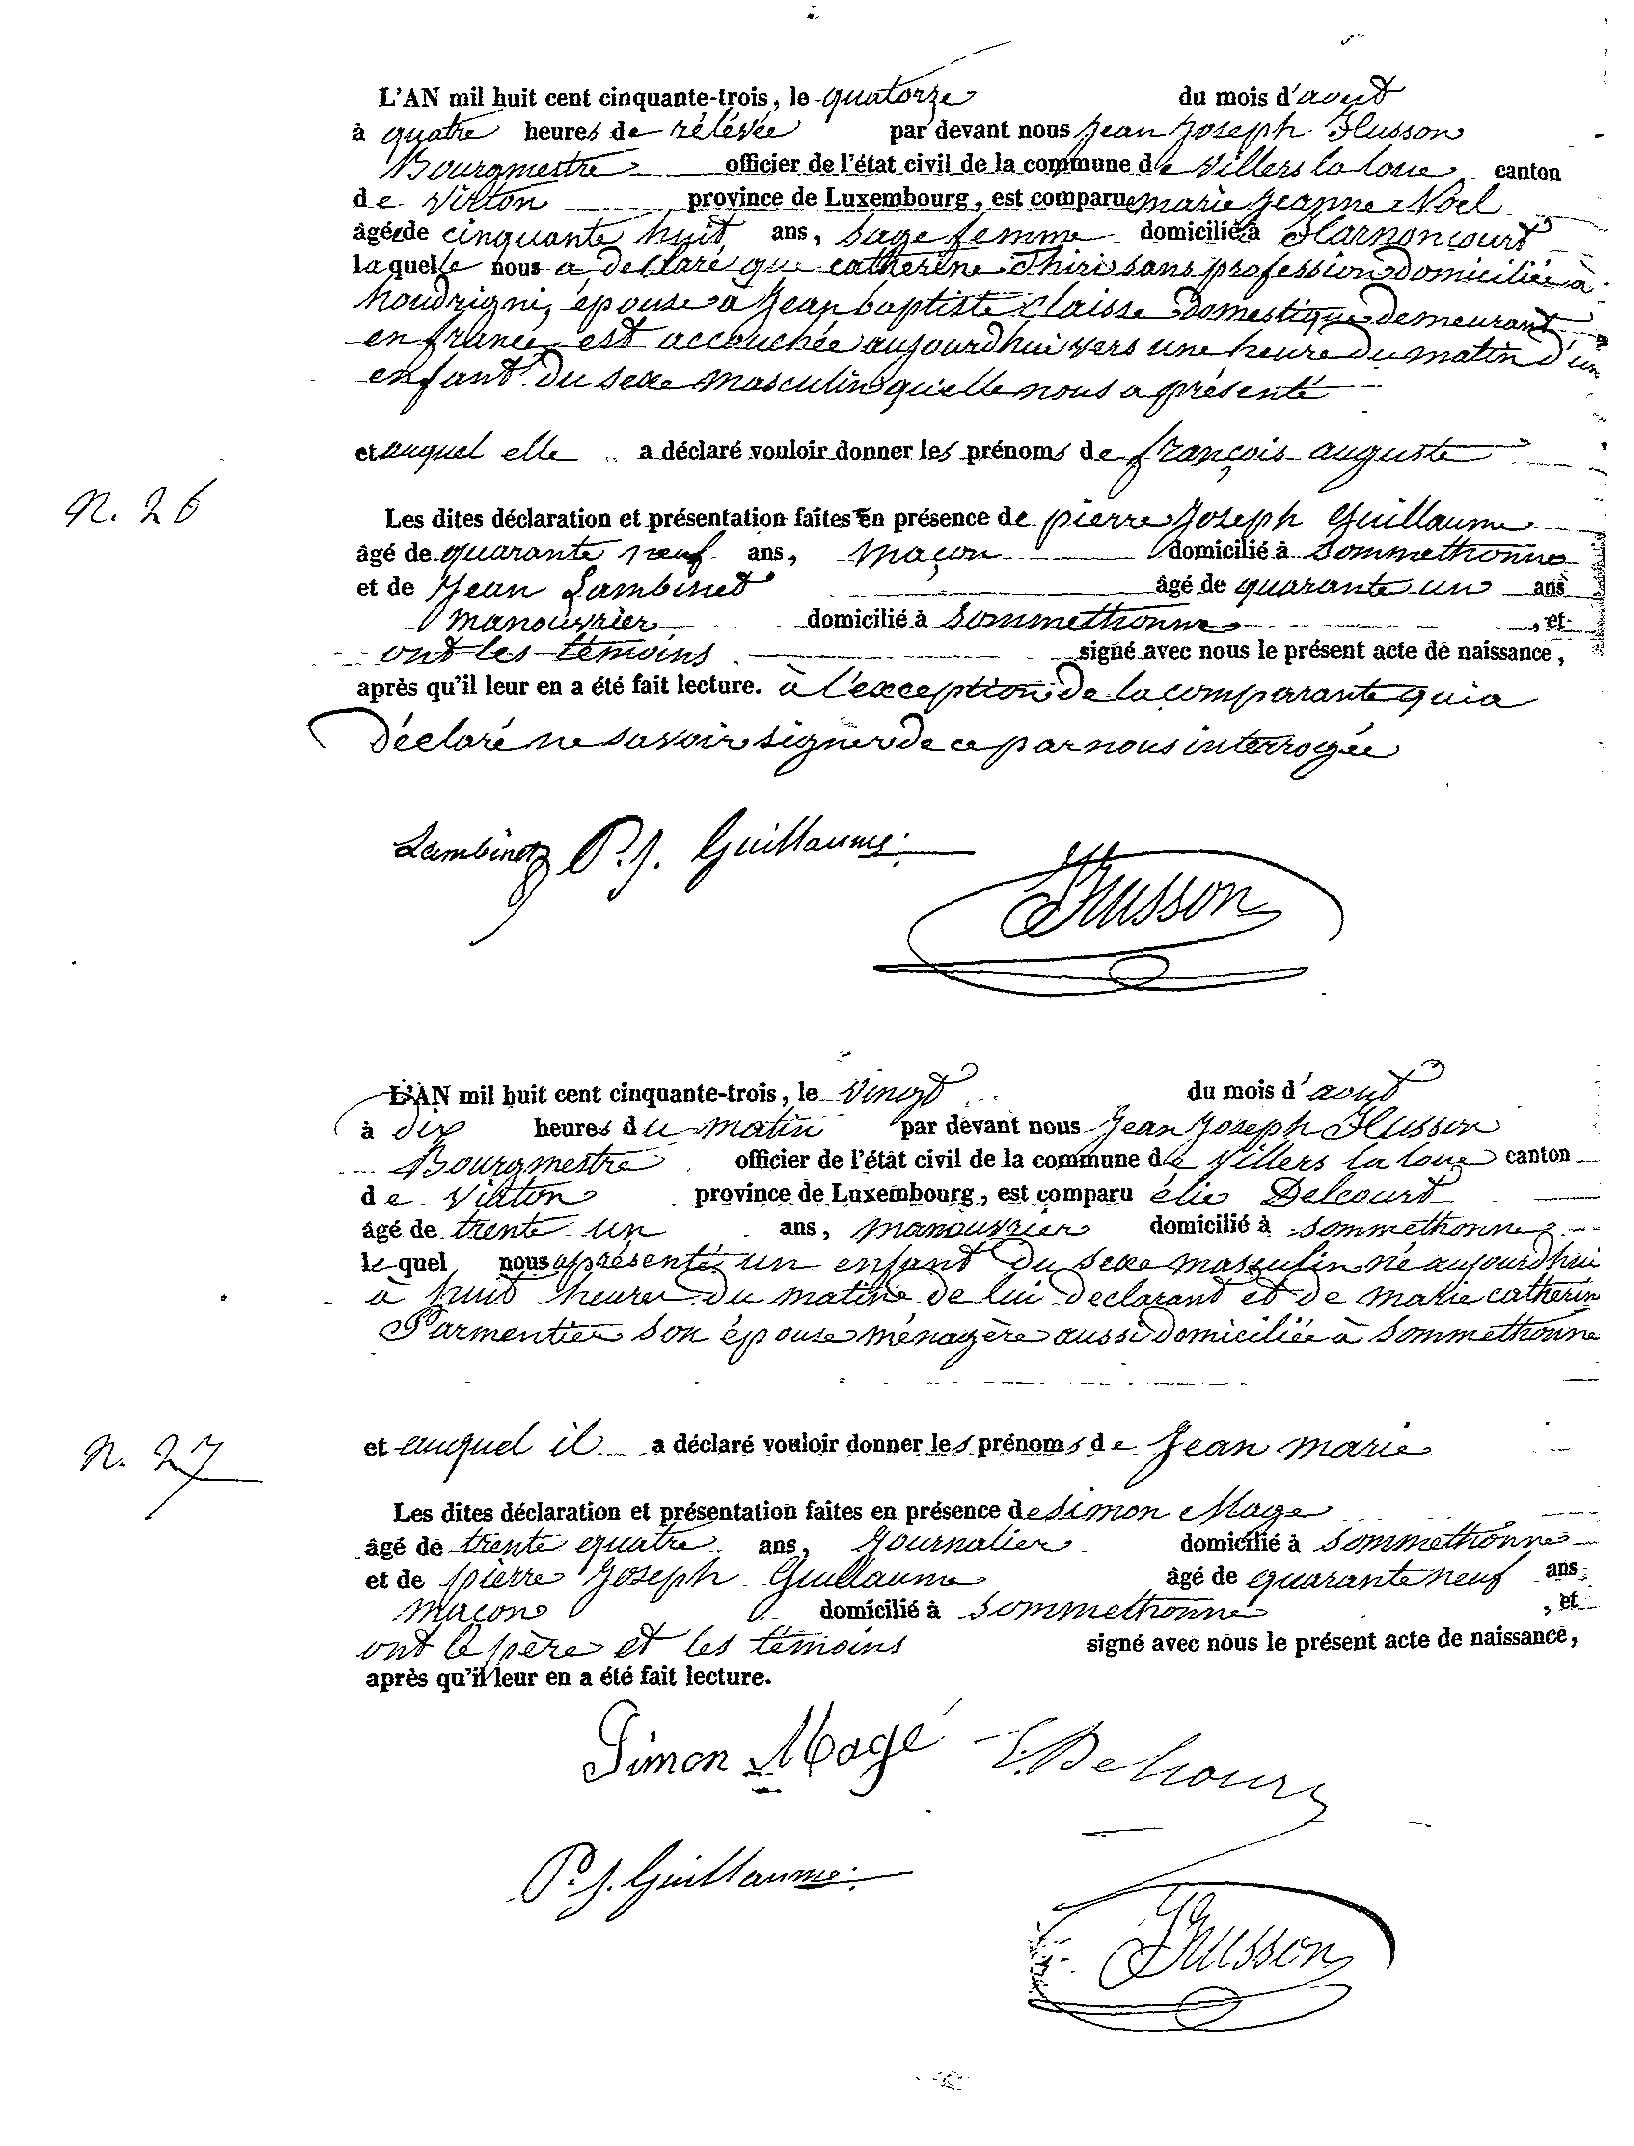 L'AN mil huit cent cinquante-trois, le quatorze du mois d'aout
à quatre heures de rélévée par devant nous Jean Joseph Husson
Bourgmestre officier de l'état civil de la commune de Villers la loue canton
de Virton province de Luxembourg, est comparue marie Jeanne Noël
âgée de cinquante huit ans, sage femme domiciliée à Harnoncourt
laquelle nous a declaré que catherine Thiri sans profession domiciliée à
houdrigni, épouse à Jean baptiste Claisse Domestique demeurant
en france, est accouchée aujourd'hui vers une heure du matin d'un
enfant du sexe masculin qu'elle nous a présenté
et auquel elle a déclaré vouloir donner les prénoms de françois auguste
N. 26
Les dites déclaration et présentation faites en présence de pierre Joseph Guillaume
âgé de quarante neuf ans, maçon domicilié à Sommethonne
et de Jean Lambinet âgé de quarante un ans
manouvrier domicilié à Sommethonne, et
ont les témoins signé avec nous le présent acte de naissance,
après qu'il leur en a été fait lecture. à l'exception de la comparante qui a
déclaré ne savoir signer de ce par nous interrogée
Lambinet P. J. Guillaume
Husson
L'AN mil huit cent cinquante-trois, le vingt du mois d'aout
à dix heures du matin par devant nous Jean Joseph Husson
Bourgmestre officier de l'état civil de la commune de Villers la loue canton
de Virton province de Luxembourg, est comparu élie Delcourt
âgé de trente un ans, manouvrier domicilié à Sommethonne
lequel nous a présenté un enfant du sexe masculin né aujourd'hui
à huit heures du matin de lui declarant et de marie catherin
Parmentier son épouse ménagère aussi domiciliée à Sommethonne
et auquel il a déclaré vouloir donner les prénoms de Jean marie
N. 27
Les dites déclaration et présentation faites en présence de Simon Mage
âgé de trente quatre ans, Journalier domicilié à Sommethonne
et de pierre Joseph Guillaume âgé de quarante neuf ans
maçon domicilié à Sommethonne, et
ont le père et les témoins signé avec nous le présent acte de naissance,
après qu'il leur en a été fait lecture.
Simon Magé E. Delcourt
P. J. Guillaume
Husson